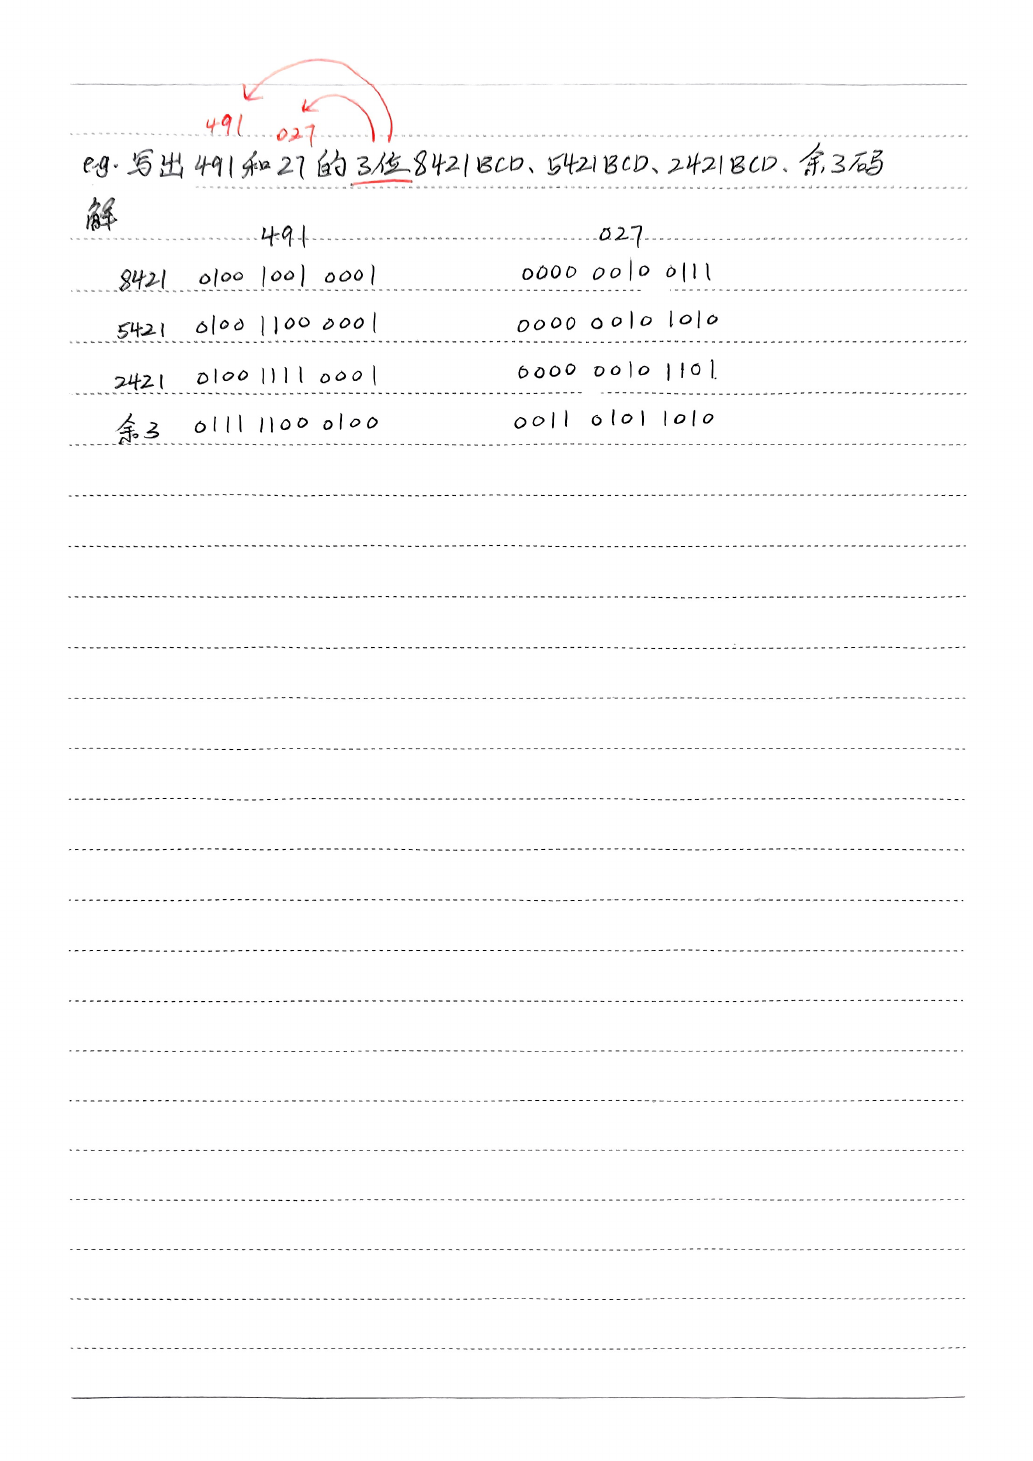 491 027
e.g. 写出 491和27 的 3位 8421BCD、5421BCD、2421BCD、余3码
解
491 027
8421 0100 1001 0001 0000 0010 0111
5421 0100 1100 0001 0000 0010 1010
2421 0100 1111 0001 0000 0010 1101
余3 0111 1100 0100 0011 0101 1010